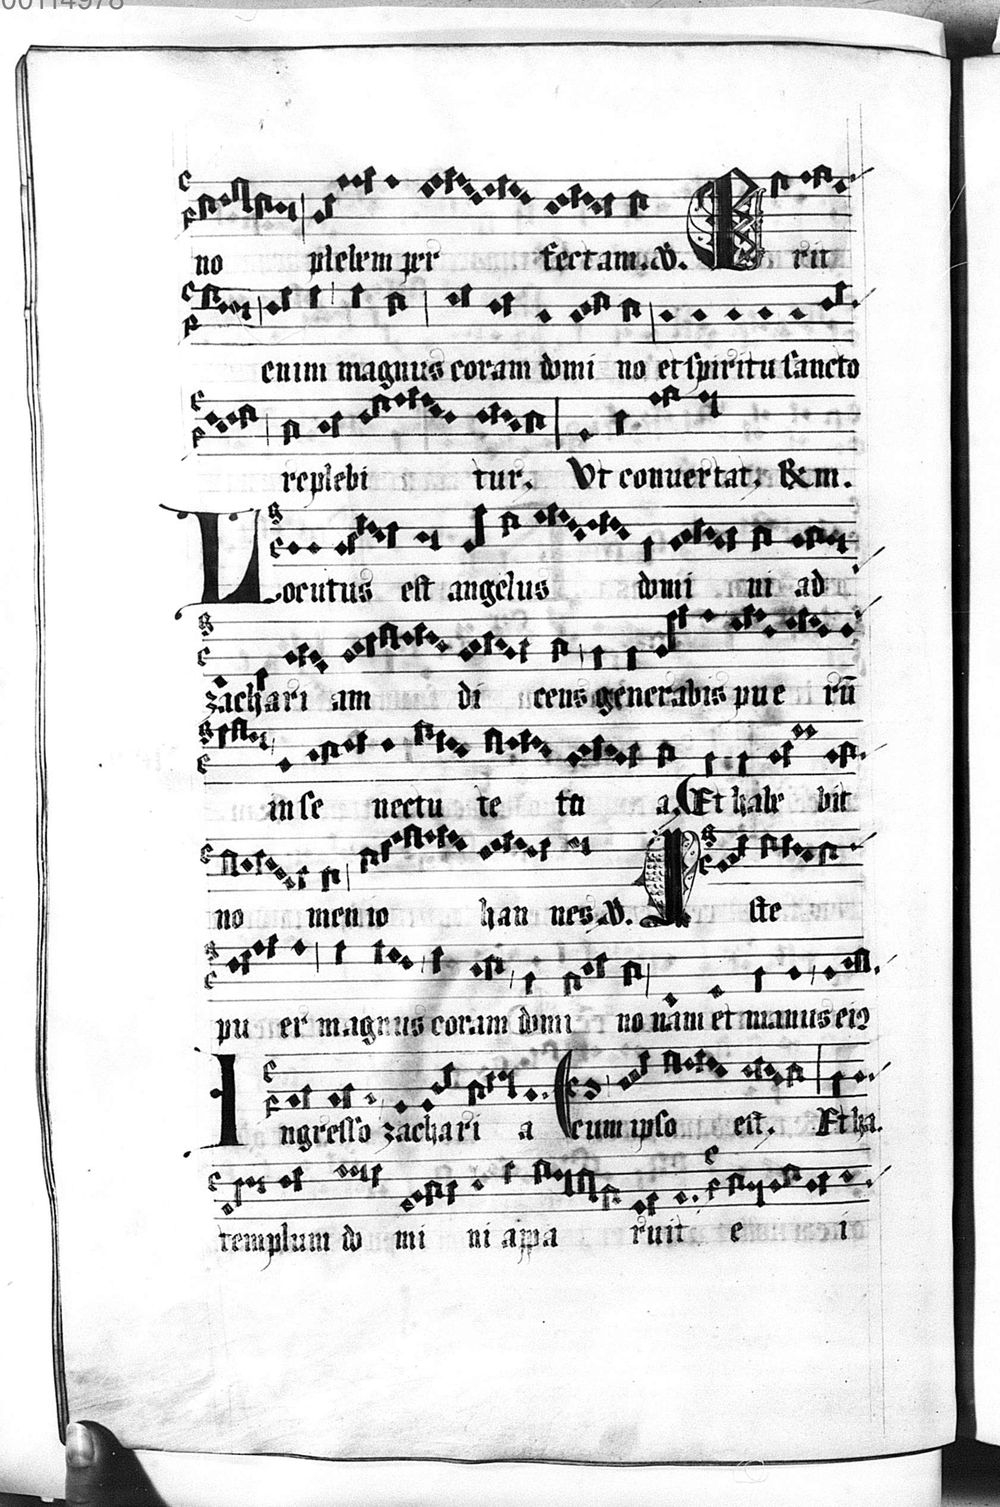 00114978
no plebem per fectam. V. Erit
enim magnus coram domi no et spiritu sancto
replebi tur. Vt conuertat.
Locutus est angelus domi ni ad
zachari am di cens generabis pue rū
in se nectu te tu a. Et habe bit
no men io han nes. V. Iste
pu er magnus coram domi no nam et manus eiꝰ
Ingresso zachari a cum ipso est. Et ha.
templum do mi ni appa ruit e i